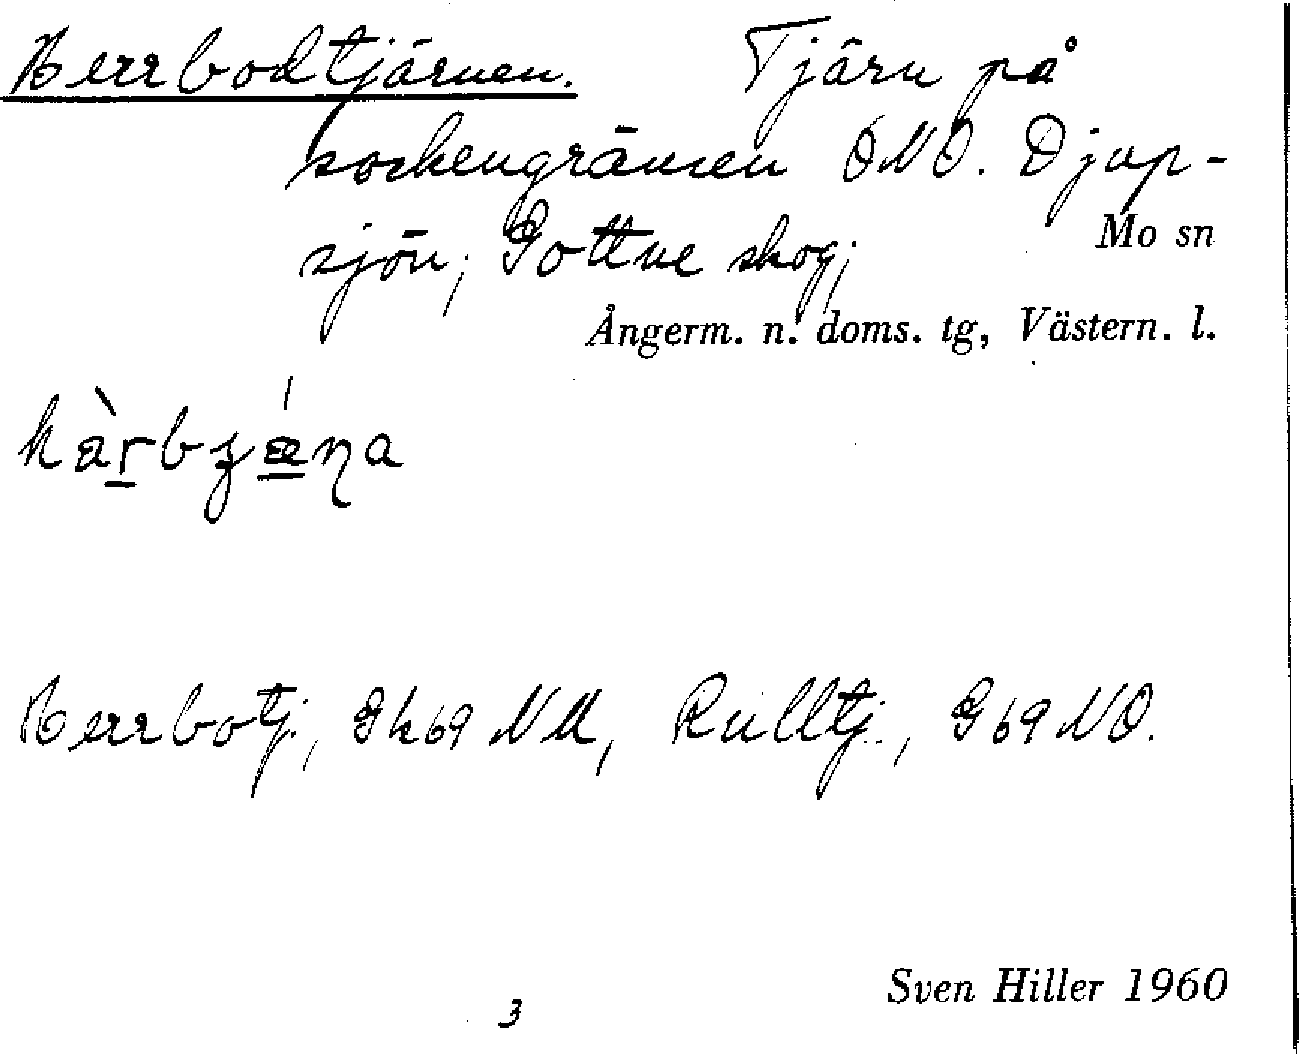 Herrbodtjärnen. Tjärn på
sockengränsen ÖNÖ. Djup-
sjön; Gottne skog;
Mo sn
Ångerm. n. doms. tg, Västern. l.
Herrbotj., Gk69 NU, Rulltj., G69 NO.
Sven Hiller 1960
3